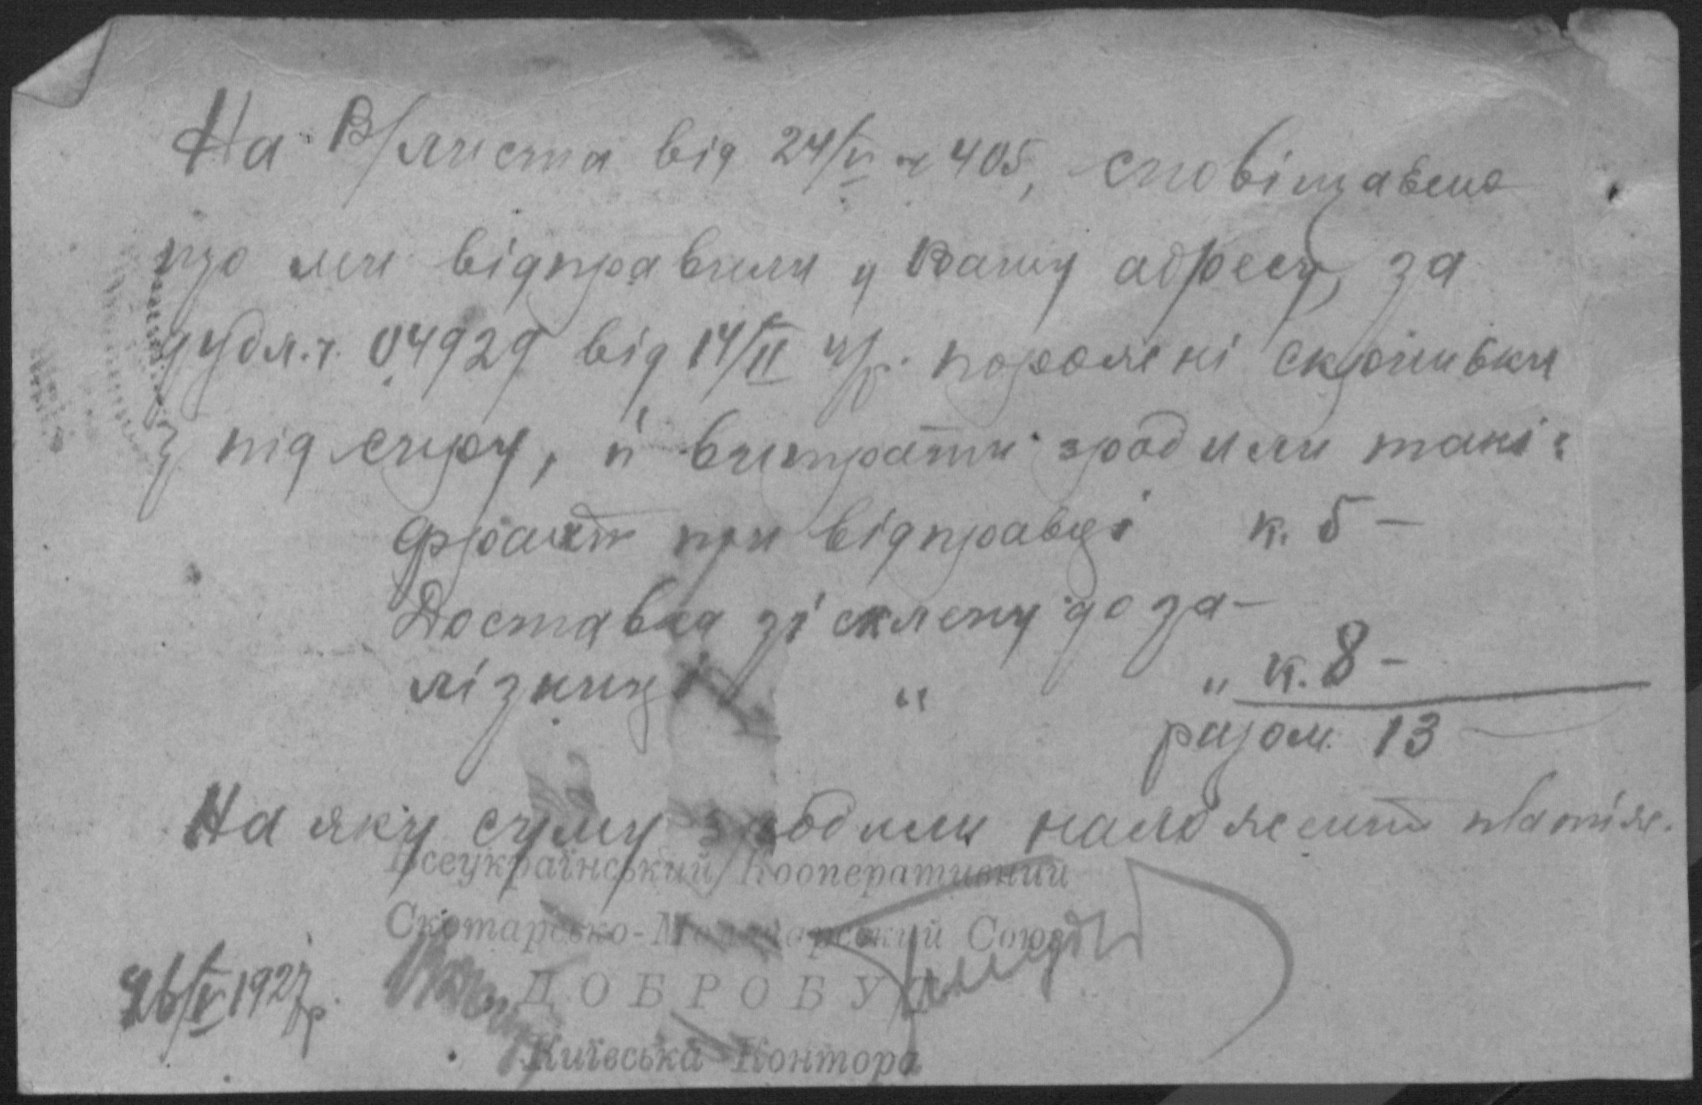 На В/листа від 24/V ч 405, сповіщаємо
що ми відправили у Вашу адресу, за
дубл. ч. 04929 від 14/II ц/р. порожні скриньки
з під сиру, й витрати зробили такі:
Фрахт при відправці к. 5 —
Доставка зі склепу до за-
лізниці " " к. 8 —
разом 13 —
На яку суму зробили наложений платіж.
Всеукраїнський Кооперативний
Скотарсько-Молочарський Союз
ДОБРОБУТ
Київська Контора
26/V 1927 р.